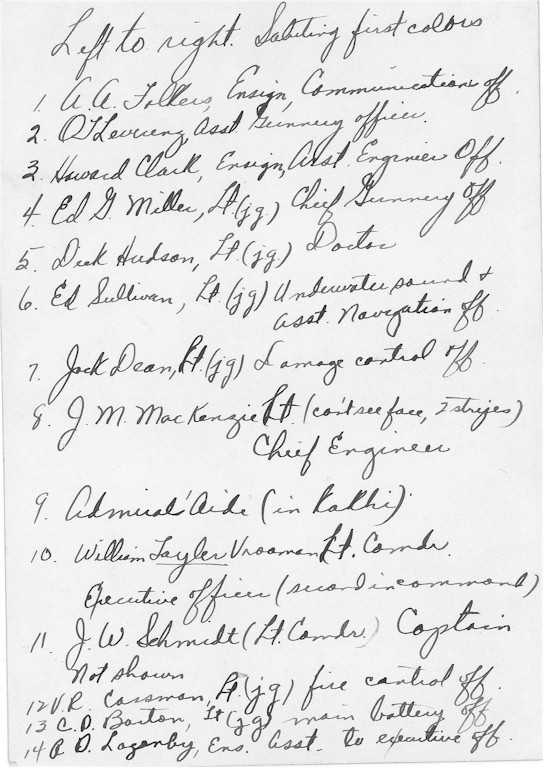 Left to right. Saluting first colors
1. A. A. Folkers, Ensign, Communication off.
2. O J Leverenz, Asst Gunnery officer.
3. Howard Clark, Ensign, Asst. Enginier Off.
4. Ed G. Miller, Lt.(jg) Chief Gunnery Off
5. Dick Hudson, Lt.(jg) Doctor
6. Ed Sullivan, Lt.(jg) Underwater sound &
Asst. Navigation off.
7. Jack Dean, Lt.(jg) Damage control off.
8. J. M. MacKenzie Lt. (can't see face, 2 stripes)
Chief Engineer
9. Admiral' Aide (in Kakhi)
10. William Tayler Vrooman Lt. Comdr.
Executive officer (second in command)
11. J. W. Schmidt (Lt. Comdr.) Captain
Not shown
12 V.R. Cassman, Lt.(jg) fire control off.
13 C. D. Barton, Lt(jg) main battery off
14 R. D. Lazenby, Ens. Asst. to executive off.